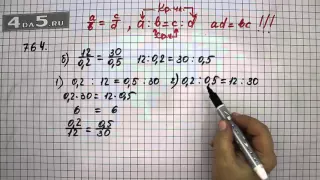 4DA5.RU
Кр.чл.
a/b = c/d , a : b = c : d ad = bc !!!
764.
б) 12/0,2 = 30/0,5 12:0,2 = 30:0,5
1) 0,2 : 12 = 0,5 : 30 2) 0,2 : 0,5 = 12 : 30
0,2 · 30 = 12 · 0,5
6 = 6
0,2/12 = 0,5/30